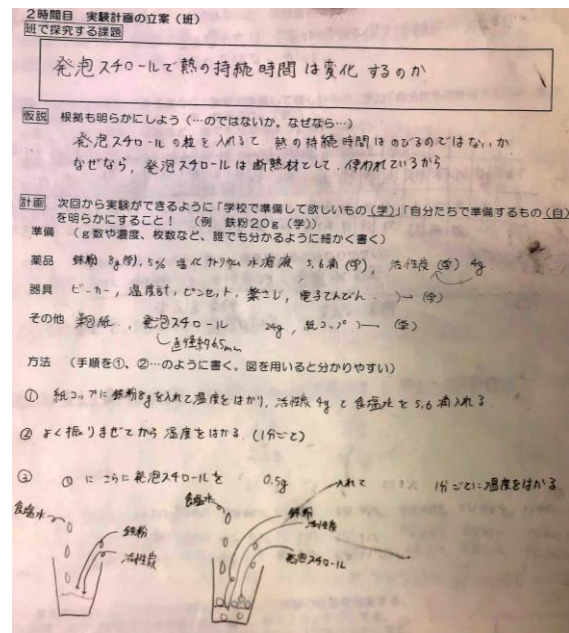 2時間目 実験計画の立案（班）
班で探究する課題
発泡スチロールで熱の持続時間は変化するのか
仮説 根拠も明らかにしよう（…のではないか。なぜなら…）
発泡スチロールの粒を入れると 熱の持続時間はのびるのではないか
なぜなら，発泡スチロールは断熱材として，使われているから
計画 次回から実験ができるように「学校で準備して欲しいもの（学）」「自分たちで準備するもの（自）
を明らかにすること！ （例 鉄粉20g（学））
準備 （g数や濃度、枚数など、誰でも分かるように細かく書く）
薬品 鉄粉 8g（学），5% 塩化ナトリウム水溶液 5,6滴（学），活性炭（学）4g
器具 ビーカー，温度計，ピンセット，薬さじ，電子てんびん（学）
その他 薬包紙，発泡スチロール 24g，紙コップ（学）
直径約6.5mm
方法 （手順を①、②…のように書く。図を用いると分かりやすい）
① 紙コップに鉄粉8gを入れて温度をはかり，活性炭4gと食塩水を5,6滴入れる
② よく振りまぜてから温度をはかる．（1分ごと）
③ ①にさらに発泡スチロールを 0.5g 入れて 1分ごとに温度をはかる
食塩水
鉄粉
活性炭
食塩水
鉄粉
活性炭
発泡スチロール